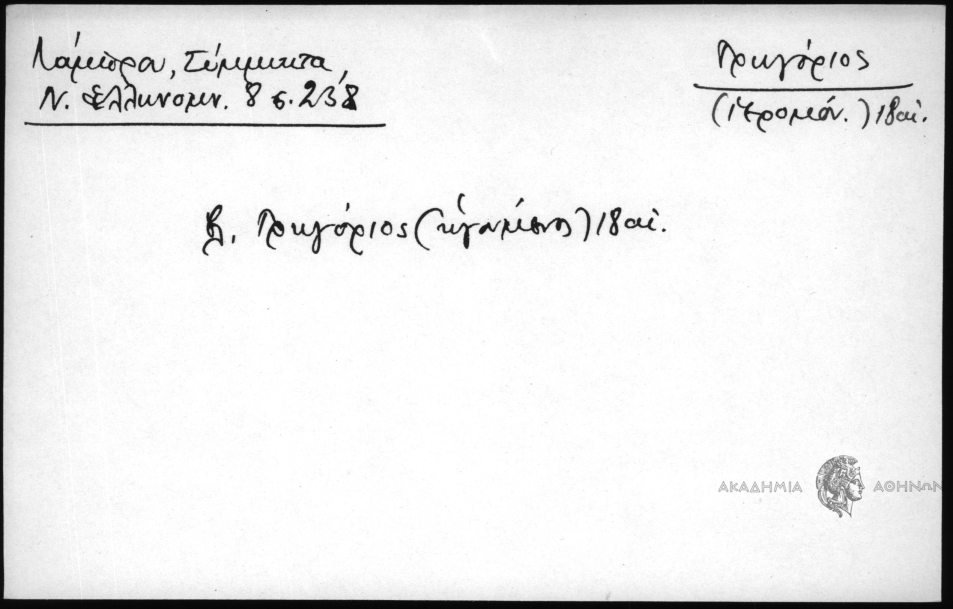 Λάμπρου, Σύμμικτα,
Ν. Ἑλληνομν. 8 σ. 238
Γρηγόριος
(ἱερομόν.) 18 αἰ.
βλ. Γρηγόριος (ἡγούμενος) 18 αἰ.
ΑΚΑΔΗΜΙΑ ΑΘΗΝΩΝ